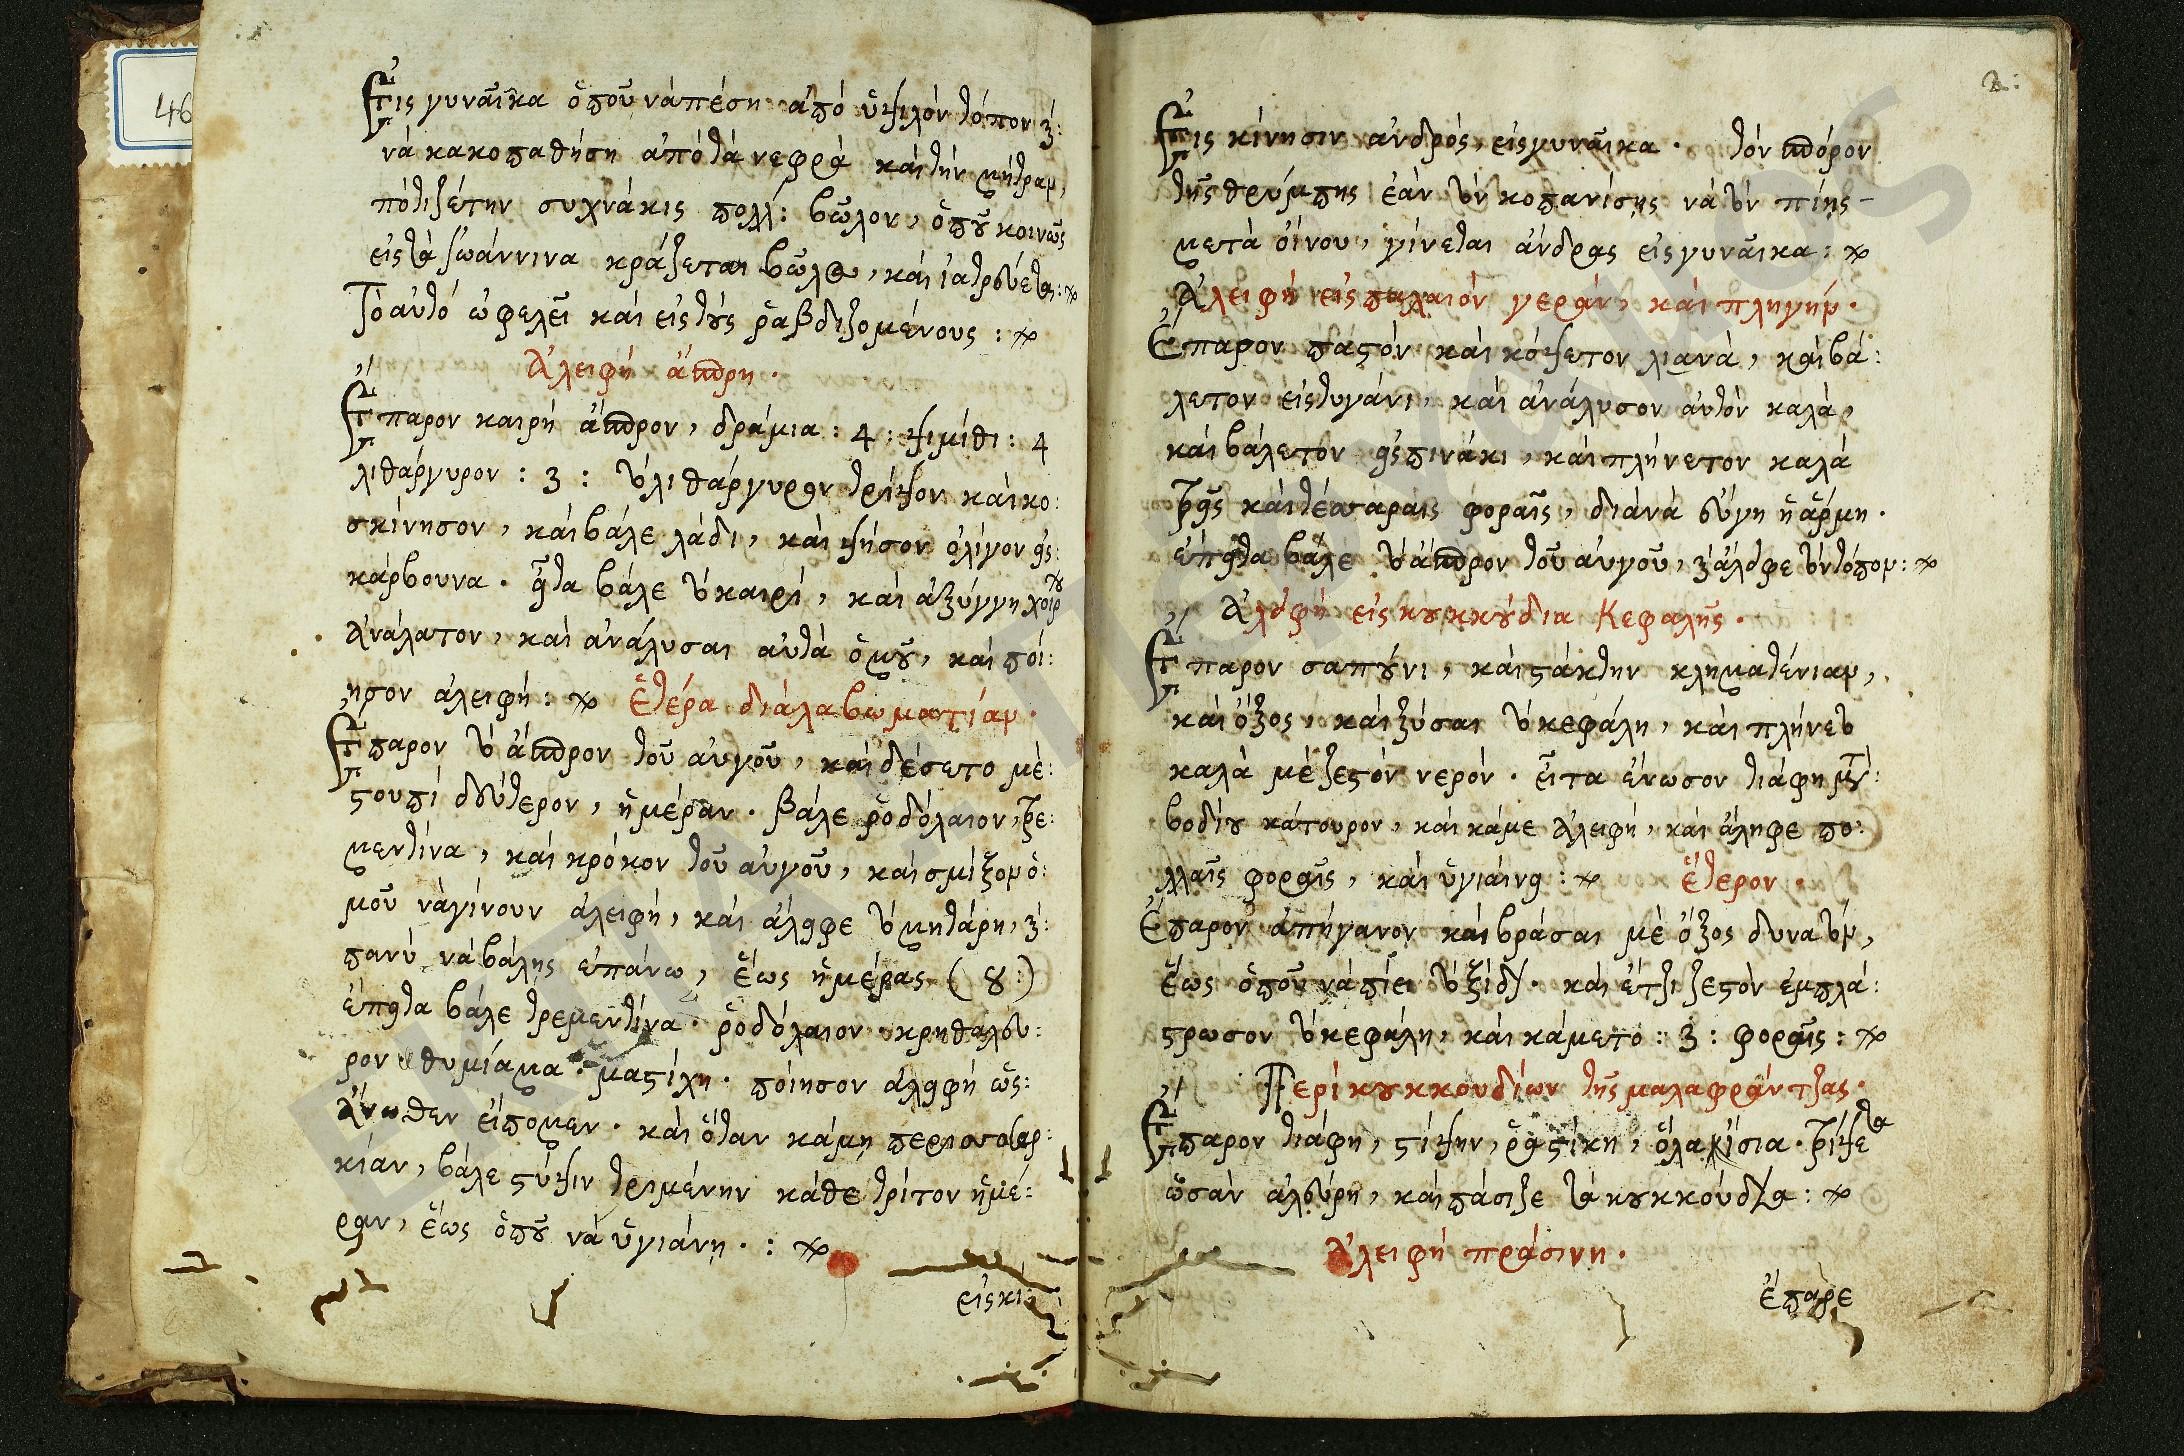 46
Εἰς γυναῖκα ὁποῦ νὰ πέσῃ ἀπὸ ὑψιλὸν τόπον
νὰ κακοπαθήσῃ ἀπὸ τὰ νεφρὰ καὶ τὴν μήτραν,
πότιζέ την συχνάκις βῶλον, ὁποῦ κοινῶς
εἰς τὰ Ἰωάννινα κράζεται βῶλος, καὶ ἰατρεύεται:
Τὸ αὐτὸ ὠφελεῖ καὶ εἰς τοὺς ῥαβδιζομένους:
Ἀλειφὴ ἄσπρη.
Ἔπαρον καιρὴ ἄσπρον, δράμια: 4: ψιμίθι: 4
λιθάργυρον: 3: τὸ λιθάργυρον τρίψον καὶ κο:
σκίνησον, καὶ βάλε λάδι, καὶ ψῆσον ὀλίγον εἰς
κάρβουνα. εἶτα βάλε τὸ καιρὶ, καὶ ἀξύγγη χοίρου
ἀνάλατον, καὶ ἀνάλυσαι αὐτὰ ὁμοῦ, καὶ ποί:
ησον ἀλειφή: Ἑτέρα διὰ λαβωματίαν.
Ἔπαρον τὸ ἄσπρον τοῦ αὐγοῦ, καὶ δέσετο μὲ:
στουπὶ δεύτερον, ἡμέραν. βάλε ῥοδόλαιον, τρε:
μεντίνα, καὶ κρόκον τοῦ αὐγοῦ, καὶ σμίξον ὁ:
μοῦ νὰ γίνουν ἀλειφή, καὶ ἄλειφε τὸ μητάρη,
πανὺ νὰ βάλῃς ἐπάνω, ἕως ἡμέρας (8:)
ἔπειτα βάλε τρεμεντίνα. ῥοδόλαιον. κρηθάλευ:
ρον θυμίαμα. μαστίχη. ποίησον ἀλειφὴ ὡς:
ἄνωθεν εἴπομεν. καὶ ὅταν κάμῃ περισσοσαρ:
κίαν, βάλε στύψιν τριμένην κάθε τρίτον ἡμέ:
ραν, ἕως ὁποῦ νὰ ὑγιάνῃ.:
εἰς κί
2:
Εἰς κίνησιν ἀνδρὸς, εἰς γυναῖκα. τὸν σπόρον
τῆς θρύμπης ἐὰν τὸν κοπανίσῃς νὰ τὸν πίῃς
μετὰ οἴνου, γίνεται ἄνδρας εἰς γυναῖκα:
Ἀλειφὴ εἰς παλαιὸν γεράν, καὶ πληγήν.
Ἔπαρον παστὸν καὶ κόψετον λιανὰ, καὶ βά:
λετον εἰς τυγάνι, καὶ ἀνάλυσον αὐτὸν καλὰ,
καὶ βάλετον εἰς πινάκι, καὶ πλήνετον καλὰ
τρεῖς καὶ τέσσαραις φοραῖς, διὰ νὰ εὔγῃ ἡ ἄρμη.
ἔπειτα βάλε τὸ ἄσπρον τοῦ αὐγοῦ, ἄλειφε τὸν τόπον:
Ἀλειφὴ εἰς κουκκούδια Κεφαλῆς.
Ἔπαρον σαπούνι, καὶ στάκτην κληματένιαν,
καὶ ὄξος, καὶ ξύσαι τὸ κεφάλη, καὶ πλήνετο
καλὰ μὲ ζεστὸν νερόν. εἶτα ἕνωσον τιάφη μὲ
βοδίου κάτουρον, καὶ κάμε ἀλειφή, καὶ ἄληφε πο:
λλαῖς φοραῖς, καὶ ὑγιαίνει: ἕτερον.
Ἔπαρον ἀπήγανον καὶ βράσαι μὲ ὄξος δυνατὸν,
ἕως ὁποῦ νὰ πίει τὸ ξίδι. καὶ ἔτζι ζεστὸν ἐμπλά:
στρωσον τὸ κεφάλη, καὶ κάμετο: 3: φοραῖς:
Περὶ κουκκουδίων τῆς μαλαφράντζας.
Ἔπαρον τιάφη, στίψην, ῥαστίκη, ὅλα ἴσια. τρίψε τα
ὡσὰν ἀλεύρη, καὶ πάσιζε τὰ κουκκούδια:
Ἀλειφὴ πράσινη.
ἔπαρε